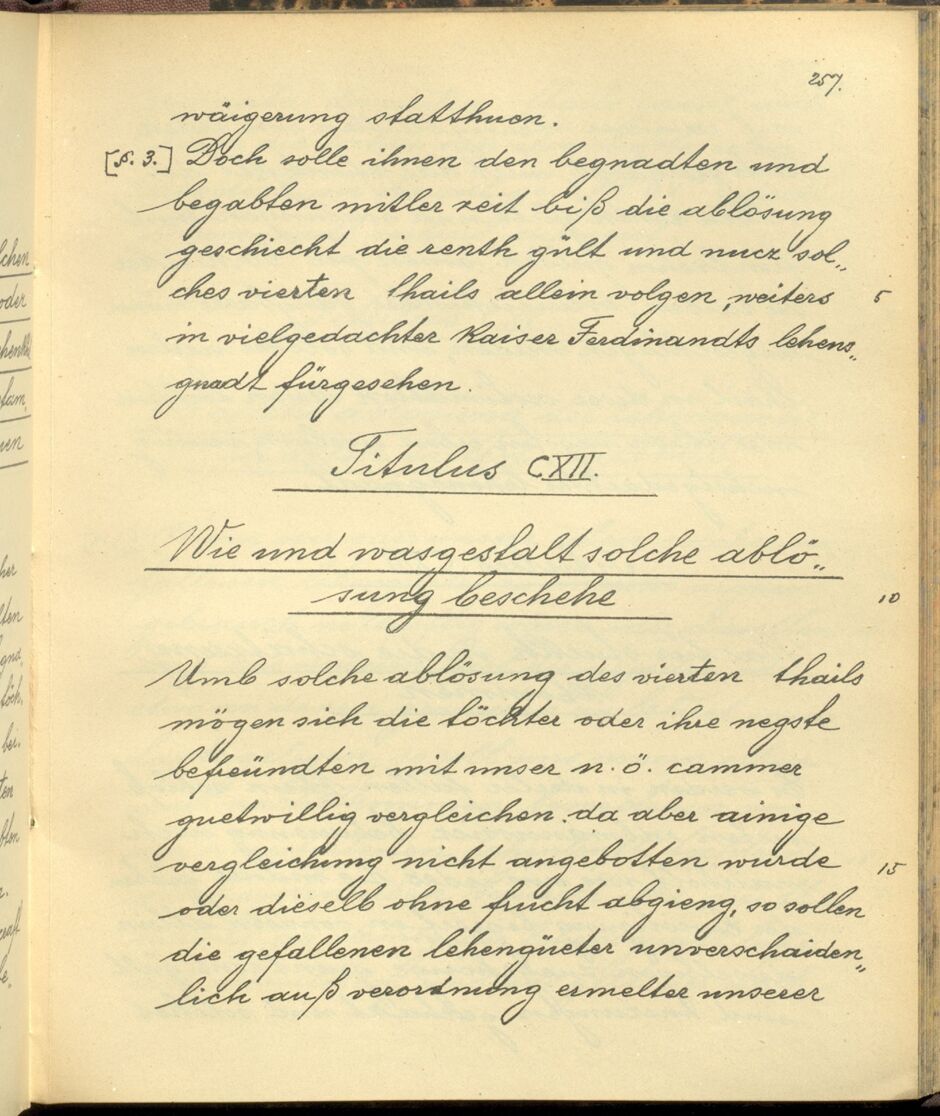 257.
wäigerung statthuen.
[§. 3.] Doch solle ihnen den begnadten und
begabten mitler zeit biß die ablösung
geschiecht die renth gült und nucz sol„
ches vierten thails allein volgen, weiters 5
in vielgedachter Kaiser Ferdinandts lehens„
gnadt fürgesehen.
Titulus CXII.
Wie und wasgestalt solche ablö„
sung beschehe 10
Umb solche ablösung des vierten thails
mögen sich die töchter oder ihre negste
befreündten mit unser n. ö. cammer
guetwillig vergleichen, da aber ainige
vergleichung nicht angebotten wurde 15
oder dieselb ohne frucht abgieng, so sollen
die gefallenen lehengüeter unverschaiden„
lich auß verordnung ermelter unserer